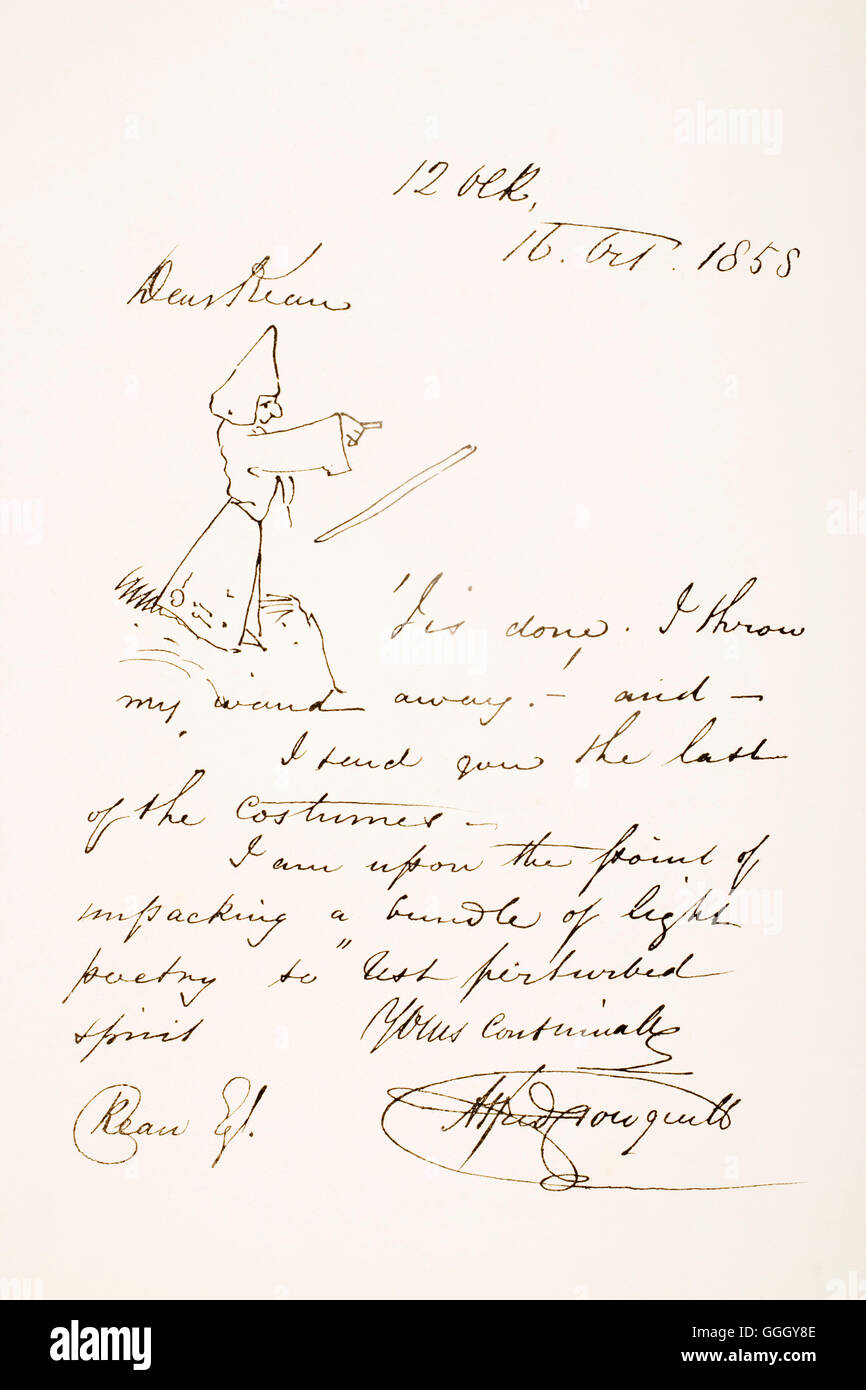 12 Ock,
16. Oct. 1858
Dear Kean
'Tis done. I throw
my wand away. – and –
I send you the last
of the costumes –
I am upon the point of
unpacking a bundle of light
poetry so "Rest perturbed
spirit
Yours Continually
Kean Esq.
Alfred Crowquill
alamy
Image ID: GGGY8E
www.alamy.com